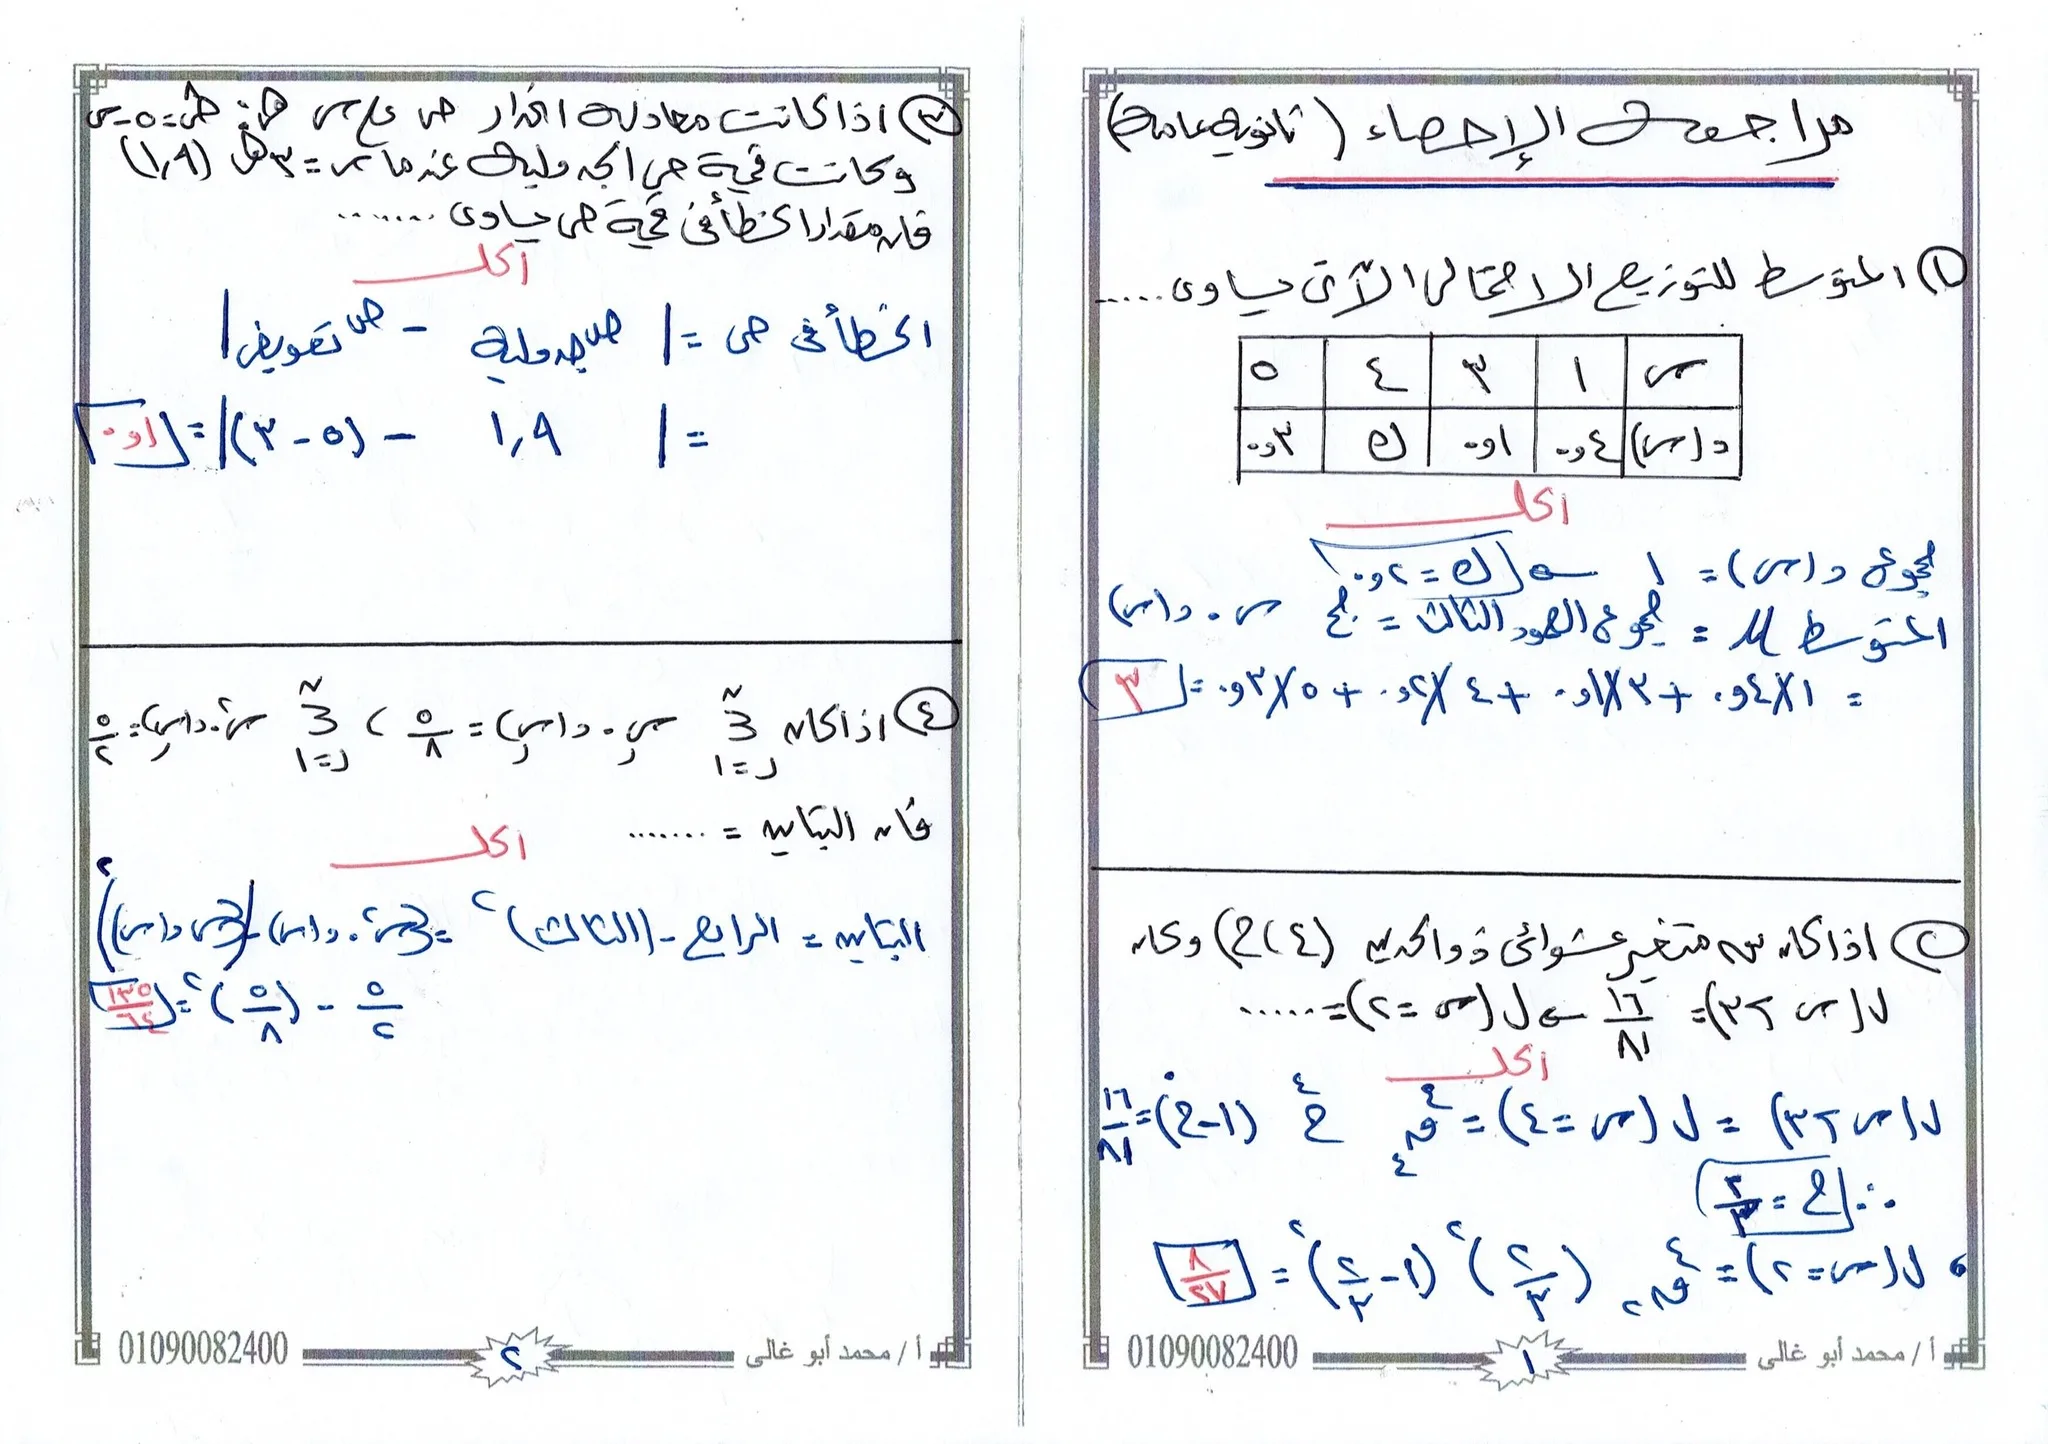 مراجعة الإحصاء (ثانوية عامة)
① المتوسط للتوزيع الاحتمالى الآتى يساوى .....
س | ١ | ٣ | ٤ | ٥
د(س) | ٤و٠ | ١و٠ | ك | ٣و٠
الحل
مجموع د(س) = ١ ⇐ ك = ٢و٠
المتوسط μ = مجموع العمود الثالث = مجـ س . د(س)
= ١×٤و٠ + ٣×١و٠ + ٤×٢و٠ + ٥×٣و٠ = ٣
② اذا كان س متغير عشوائى ذو الحدين (٤، ح) وكان
ل(س > ٣) = ١٦/٨١ ⇐ ل(س = ٢) = .....
الحل
ل(س > ٣) = ل(س = ٤) = ⁴ق₄ ح⁴ (١ - ح)⁰ = ١٦/٨١
∴ ح = ٢/٣
، ل(س = ٢) = ⁴ق₂ (٢/٣)² (١ - ٢/٣)² = ٨/٢٧
أ / محمد أبو غالى ١ 01090082400
③ اذا كانت معادلة انحدار ص على س هى: ص^ = ٥ - س
وكانت قيمة ص الجدولية عند ما س = ٣ هى (١,٩)
فإن مقدار الخطأ فى قيمة ص يساوى .......
الحل
الخطأ فى ص = | ص جدولية - ص تعويض |
= | ١,٩ - (٥ - ٣) | = ١و٠
④ اذا كان ∑ (ر=١ إلى ن) سر . د(سر) = ٥/٨ ، ∑ (ر=١ إلى ن) سر² . د(سر) = ٥/٢
فإن التباين = .......
الحل
التباين = الرابع - (الثالث)² = ∑س² . د(س) - (∑س د(س))²
٥/٢ - (٥/٨)² = ١٣٥/٦٤
أ / محمد أبو غالى ٢ 01090082400